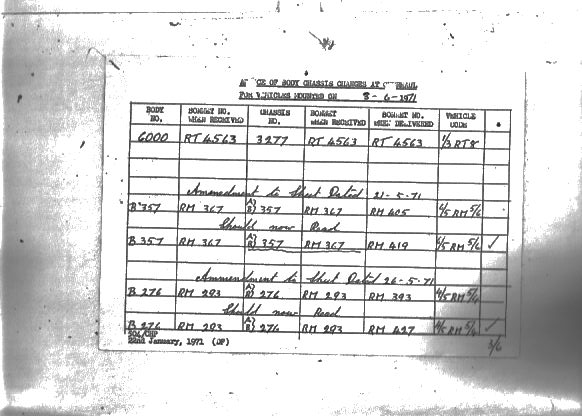 OF BODY CHASSIS CHANGES AT
FOR VEHICLES MOUNTED ON 8-6-1971
BODY NO. BONNET NO. WHEN RECEIVED CHASSIS NO. BONNET WHEN RECEIVED BONNET NO. WHEN DELIVERED VEHICLE CODE
6000 RT 4563 3277 RT 4563 RT 4563 1/3 RT8
Ammendment to Sheet Dated 21-5-71
B 357 RM 367 A) B) 357 RM 367 RM 405 4/5 RM 5/6
Should now Read
B 357 RM 367 A) B) 357 RM 367 RM 419 4/5 RM 5/6 ✓
Ammendment to Sheet Dated 26-5-71
B 276 RM 293 A) B) 276 RM 293 RM 393 4/5 RM 5/6
Should now Read
B 276 RM 293 A) B) 276 RM 293 RM 427 4/5 RM 5/6 ✓
22nd January, 1971 (DF)